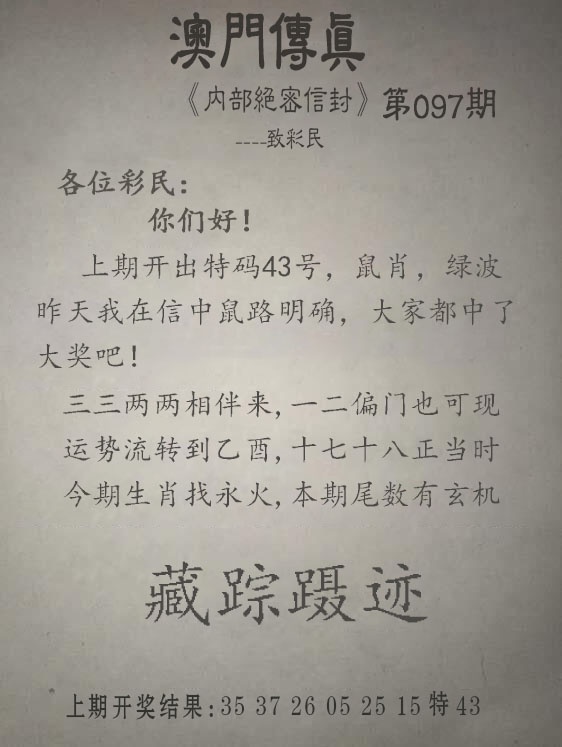 澳門傳眞
《内部絕密信封》第097期
----致彩民
各位彩民：
你们好！
上期开出特码43号，鼠肖，绿波
昨天我在信中鼠路明确，大家都中了
大奖吧！
三三两两相伴来,一二偏门也可现
运势流转到乙酉,十七十八正当时
今期生肖找永火,本期尾数有玄机
藏踪蹑迹
上期开奖结果:35 37 26 05 25 15特43